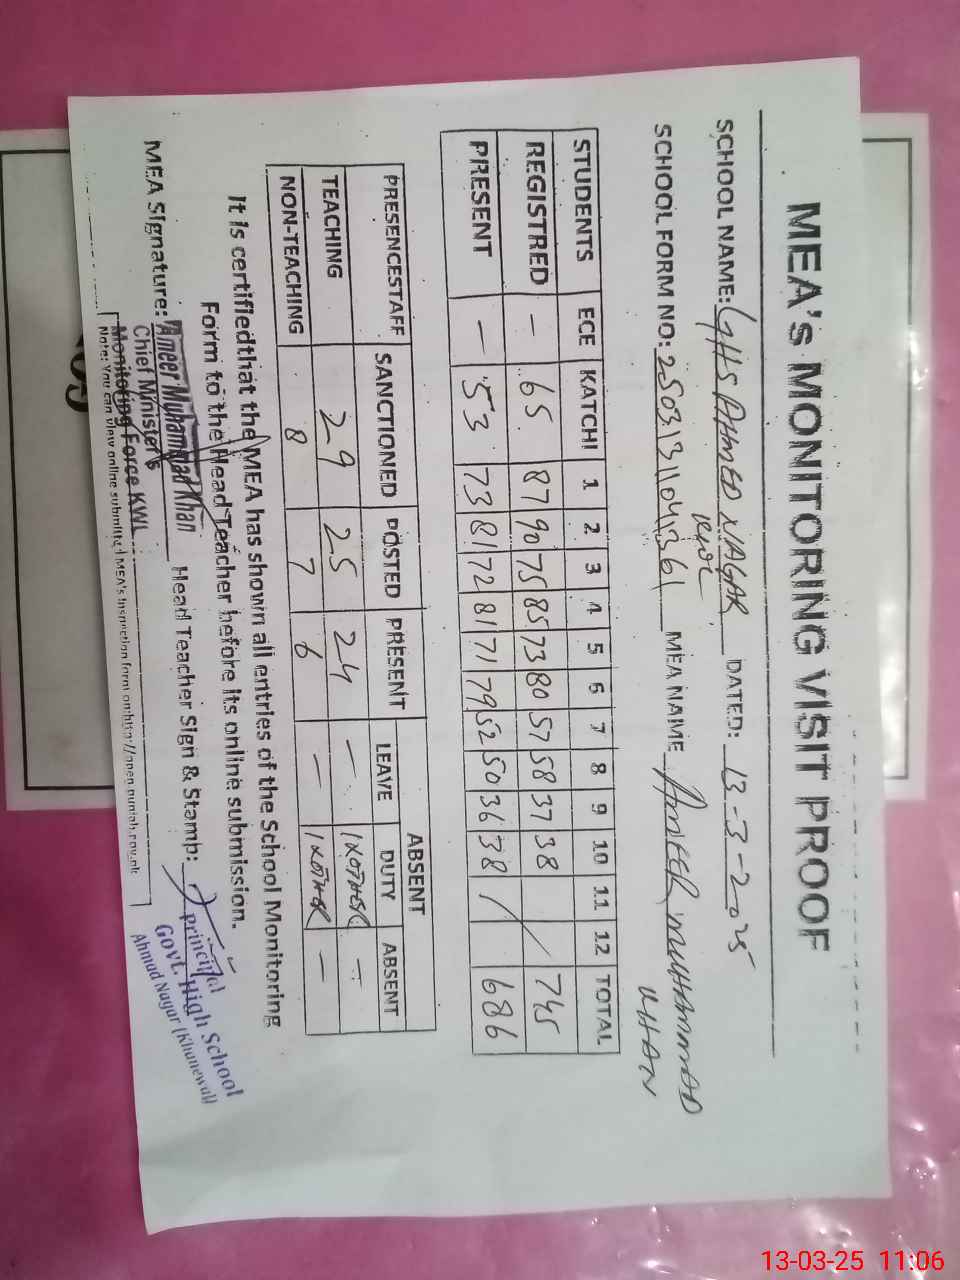 MEA's MONITORING VISIT PROOF
SCHOOL NAME: GHS AHMED NAGAR DATED: 13-3-2025
KWL
SCHOOL FORM NO: MEA NAME AMEER MUHAMMAD
KHAN
STUDENTS ECE KATCHI 1 2 3 4 5 6 7 8 9 10 11 12 TOTAL
REGISTRED — 65 87 90 75 85 73 80 57 58 37 38 / 745
PRESENT — 53 73 81 72 81 71 79 52 50 36 38 / 686
PRESENCESTAFF SANCTIONED POSTED PRESENT ABSENT
LEAVE DUTY ABSENT
TEACHING 29 25 24 — 1 —
NON-TEACHING 8 7 6 — 1 —
It is certifiedthat the MEA has shown all entries of the School Monitoring
Form to the Head Teacher before its online submission.
MEA Signature: Ameer Muhammad Khan Head Teacher Sign & Stamp:
Chief Minister's
Monitoring Force KWL
Principal
Govt. High School
Ahmad Nagar (Khanewal)
Note: You can view online submitted MEA's Inspection form on:http://open.punjab.gov.pk
13-03-25 11:06